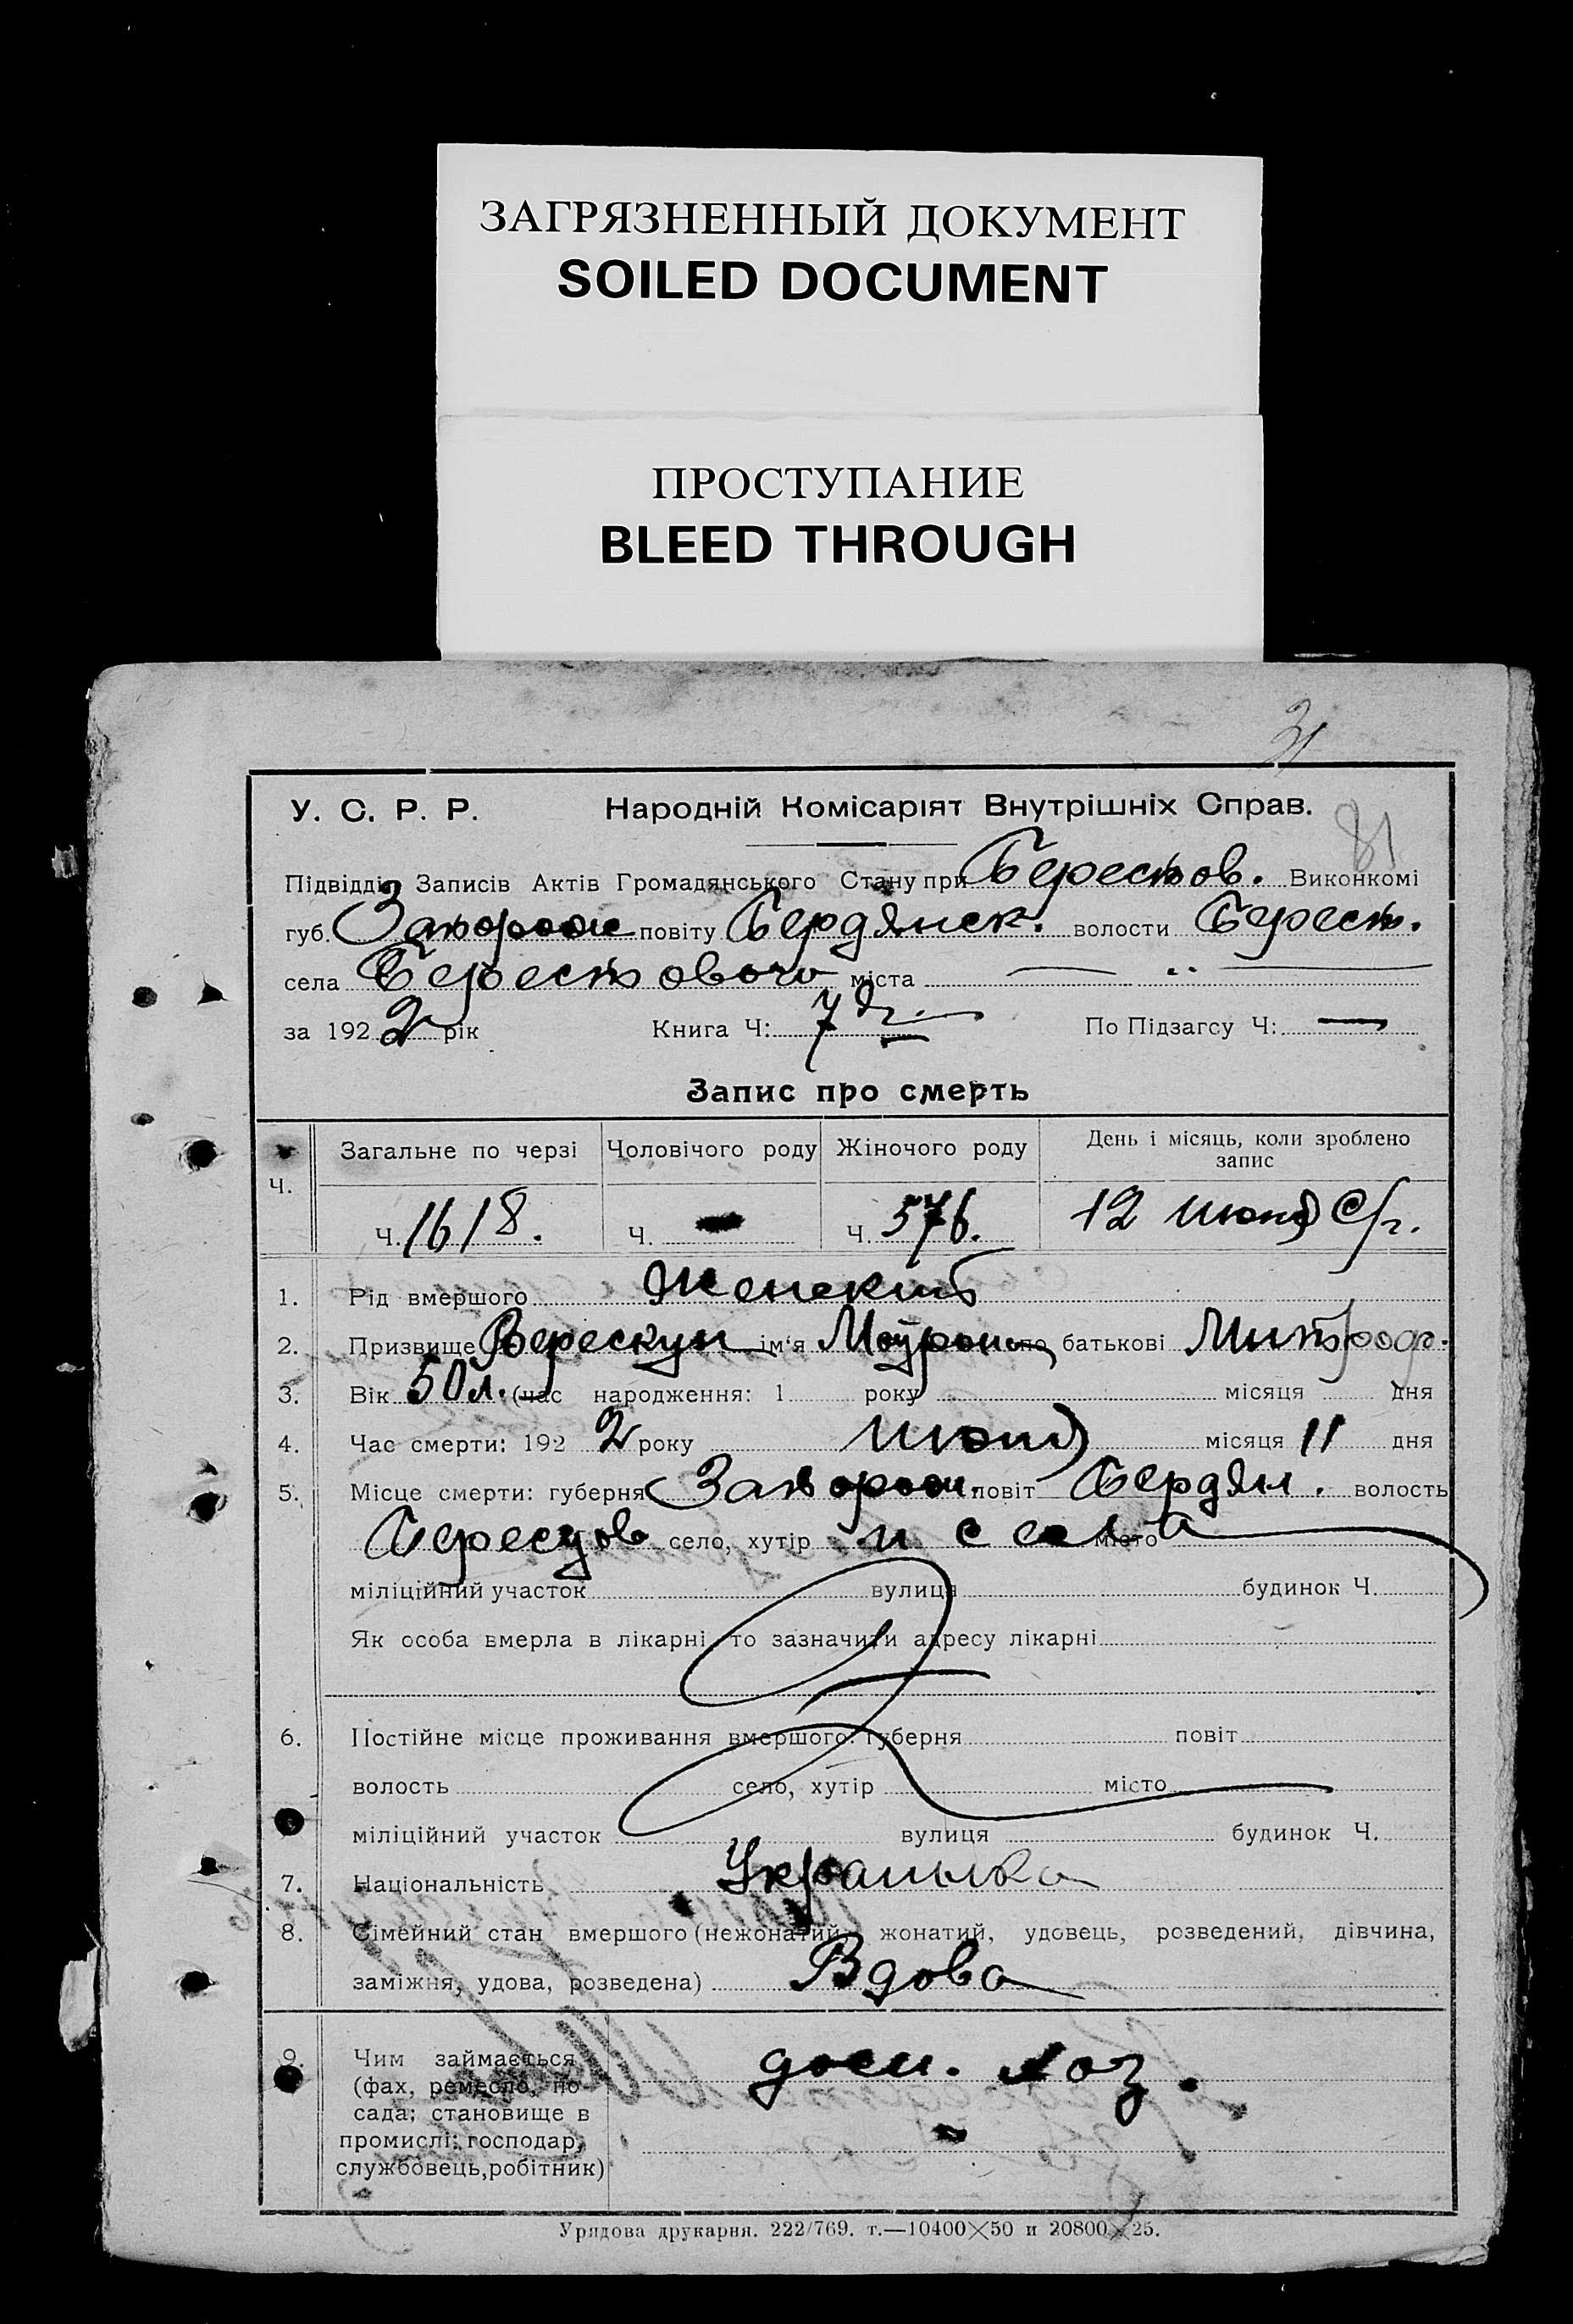 ЗАГРЯЗНЕННЫЙ ДОКУМЕНТ
SOILED DOCUMENT
ПРОСТУПАНИЕ
BLEED THROUGH
31
81
У. С. Р. Р. Народній Комісаріят Внутрішніх Справ.
Підвідділ Записів Актів Громадянського Стану при Берестов. Виконкомі
губ. Запорож повіту Бердянск. волости Берест.
села Берестового міста — „ —
за 1922 рік Книга Ч: 7 По Підзагсу Ч: —
Запис про смерть
Ч. Загальне по черзі Чоловічого роду Жіночого роду День і місяць, коли зроблено
запис
Ч. 1618. Ч. — Ч. 576. 12 июня с/г.
1. Рід вмершого Женский
2. Призвище Верескун ім‘я по батькові Митроф.
3. Вік 50 л. (час народження: 1 року місяця дня
4. Час смерти: 1922 року июня місяця 11 дня
5. Місце смерти: губерня Запорож. повіт Бердян. волость
село, хутір місто
міліційний участок вулиця будинок Ч.
Як особа вмерла в лікарні, то зазначити адресу лікарні
6. Постійне місце проживання вмершого: губерня повіт
волость село, хутір місто
міліційний участок вулиця будинок Ч.
7. Національність Украинка
8. Сімейний стан вмершого (нежонатий, жонатий, удовець, розведений, дівчина,
заміжня, удова, розведена) Вдова
9. Чим займається
(фах, ремесло, по-
сада; становище в
промислі: господар,
службовець, робітник)
хоз.
Урядова друкарня. 222/769. т.—10400×50 и 20800×25.